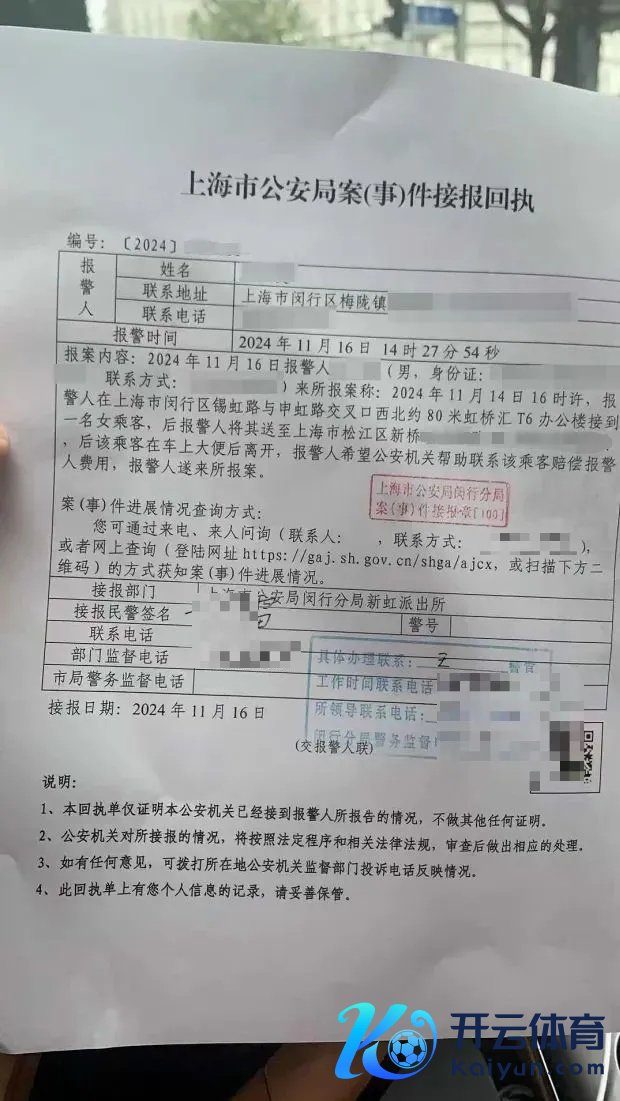 上海市公安局案(事)件接报回执
编号：〔2024〕
报警人
姓名
联系地址
上海市闵行区梅陇镇
联系电话
报警时间
2024 年 11 月 16 日 14 时 27 分 54 秒
报案内容：2024 年 11 月 16 日报警人 （男，身份证：
联系方式： ）来所报案称：2024 年 11 月 14 日 16 时许，报
警人在上海市闵行区锡虹路与申虹路交叉口西北约 80 米虹桥汇 T6 办公楼接到
一名女乘客，后报警人将其送至上海市松江区新桥
，后该乘客在车上大便后离开，报警人希望公安机关帮助联系该乘客赔偿报警
人费用，报警人遂来所报案。
上海市公安局闵行分局
案(事)件接报章[100]
案(事)件进展情况查询方式：
您可通过来电、来人问询（联系人： ，联系方式： ），
或者网上查询（登陆网址 https://gaj.sh.gov.cn/shga/ajcx，或扫描下方二
维码）的方式获知案(事)件进展情况。
接报部门
上海市公安局闵行分局新虹派出所
接报民警签名
警号
联系电话
部门监督电话
具体办理联系： 王 警官
市局警务监督电话
工作时间联系电话
所领导联系电话：
闵行分局警务监督电
接报日期：2024 年 11 月 16 日
(交报警人联)
说明：
1、本回执单仅证明本公安机关已经接到报警人所报告的情况，不做其他任何证明。
2、公安机关对所接报的情况，将按照法定程序和相关法律法规，审查后做出相应的处理。
3、如有任何意见，可拨打所在地公安机关监督部门投诉电话反映情况。
4、此回执单上有您个人信息的记录，请妥善保管。
开云体育
Kaiyun.com